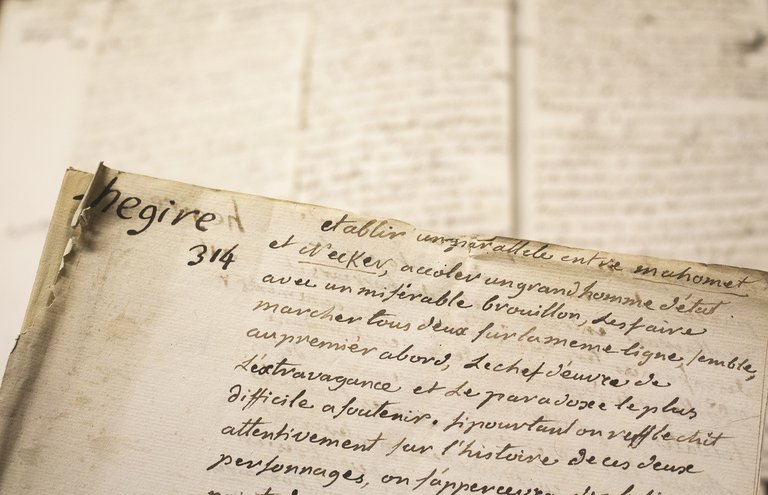 hegire
314
etablir un parallele entre mahomet
et Necker, accoler un grand homme d'état
avec un misérable brouillon, les faire
marcher tous deux sur la meme ligne, semble,
au premiér abord, le chef d'œuvre de
l'éxtravagance et le paradoxe le plus
difficile a soutenir. si pourtant on refflechit
attentivement sur l'histoire de ces deux
personnages, on s'appercevra